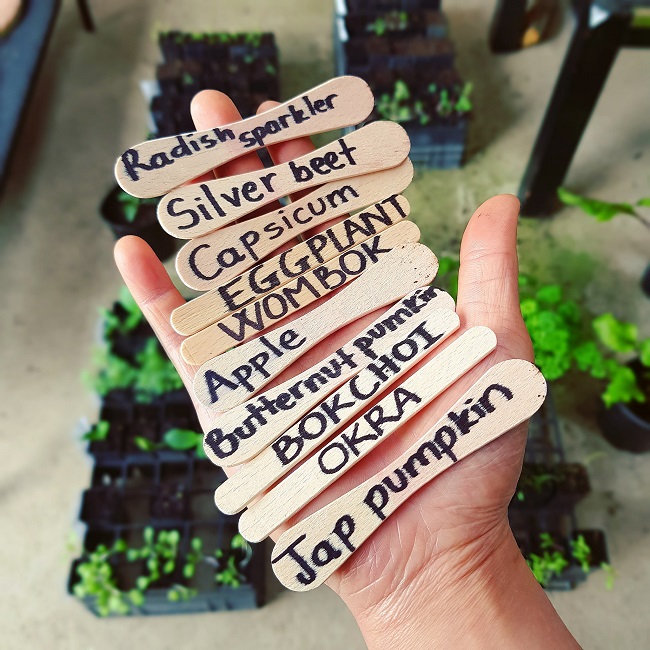 Radish sparkler
Silver beet
Capsicum
EGGPLANT
WOMBOK
Apple
Butternut pumkin
BOKCHOI
OKRA
Jap pumpkin